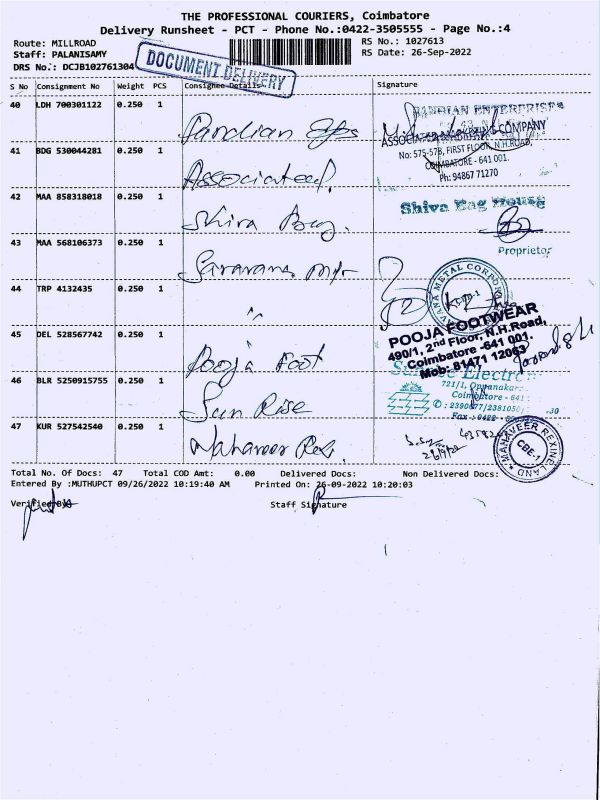 THE PROFESSIONAL COURIERS, Coimbatore
Delivery Runsheet - PCT - Phone No.:0422-3505555 - Page No.:4
Route: MILLROAD
RS No.: 1027613
Staff: PALANISAMY
RS Date: 26-Sep-2022
DRS No.: DCJB102761304
DOCUMENT DELIVERY
S No Consignment No Weight PCS Consignee Details Signature
40 LDH 700301122 0.250 1 Pandian
PANDIAN ENTERPRISES
41 BDG 530044281 0.250 1 Associated
No: 575-57B, FIRST FLOOR, N.H.ROAD,
COIMBATORE - 641 001.
Ph: 94867 71270
42 MAA 858318018 0.250 1 Shiva Bag.
Shiva Bag House
Proprietor
43 MAA 568106373 0.250 1 Saravana
44 TRP 4132435 0.250 1 "
45 DEL 528567742 0.250 1 Pooja Foot
POOJA FOOTWEAR
490/1, 2nd Floor, N.H.Road,
Coimbatore -641 001.
Mob: 81471 12063
46 BLR 5250915755 0.250 1 Sun Rise
721/1, Oppanakar
Coimbatore - 641
47 KUR 527542540 0.250 1 Mahaveer Rex.
MAHAVEER REXINE LAND
CBE-1
Total No. Of Docs: 47 Total COD Amt: 0.00 Delivered Docs: Non Delivered Docs:
Entered By :MUTHUPCT 09/26/2022 10:19:40 AM Printed On: 26-09-2022 10:20:03
Verified By
Staff Signature